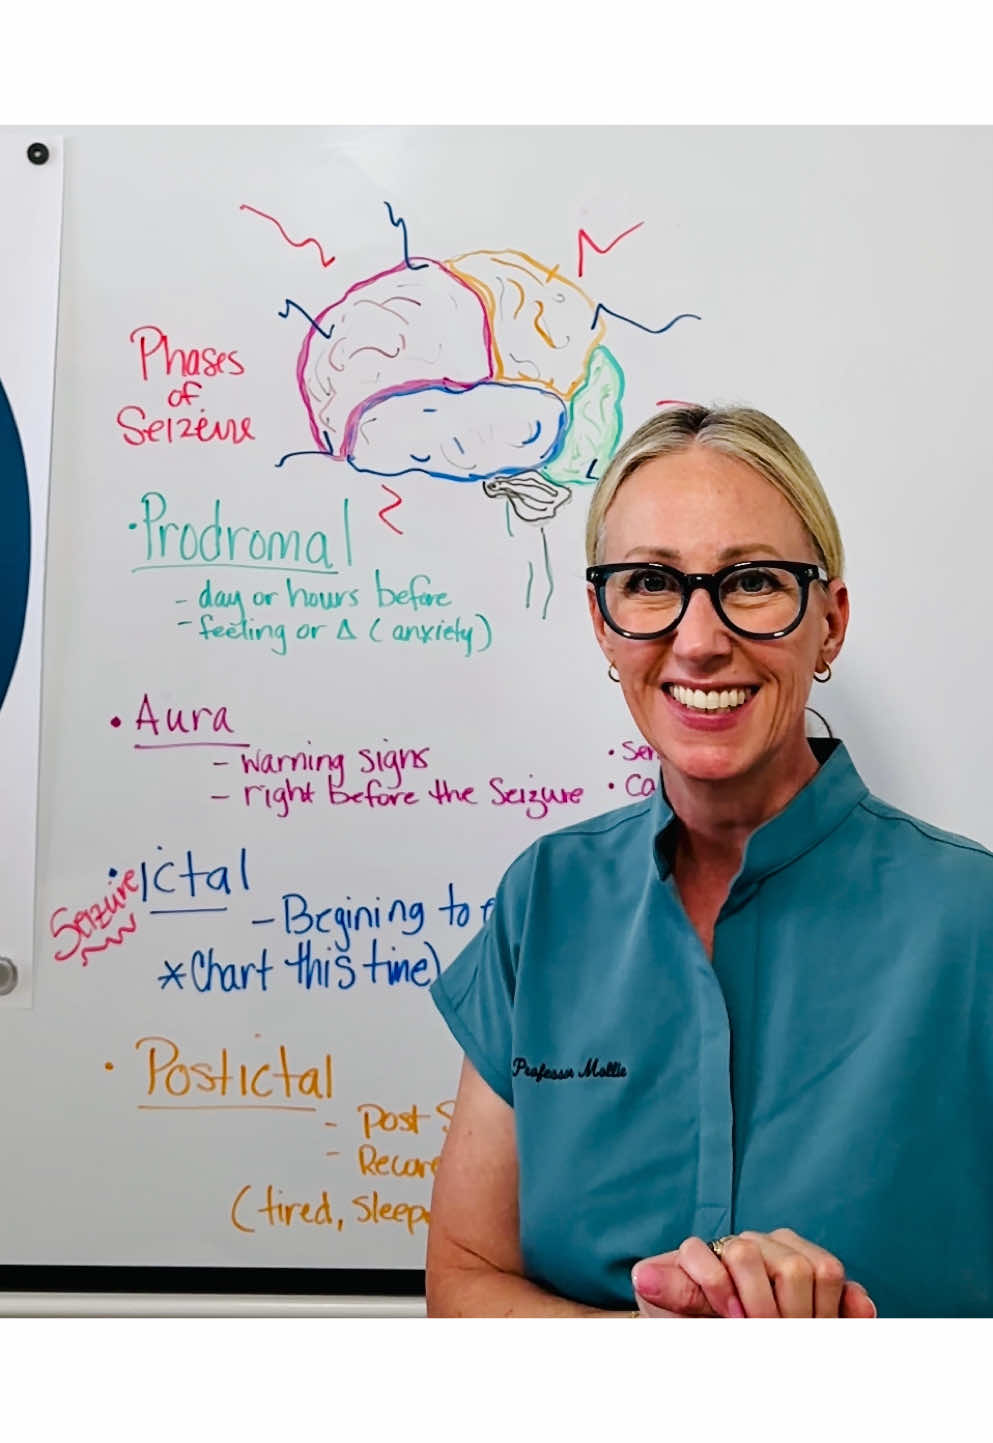 Phases
of
Seizeure
• Prodromal
- day or hours before
- feeling or Δ (anxiety)
• Aura
- warning signs
- right before the Seizure
• Ictal
Seizure
- Begining to
* Chart this time)
• Postictal
- Post
(tired,
Professor Mollie